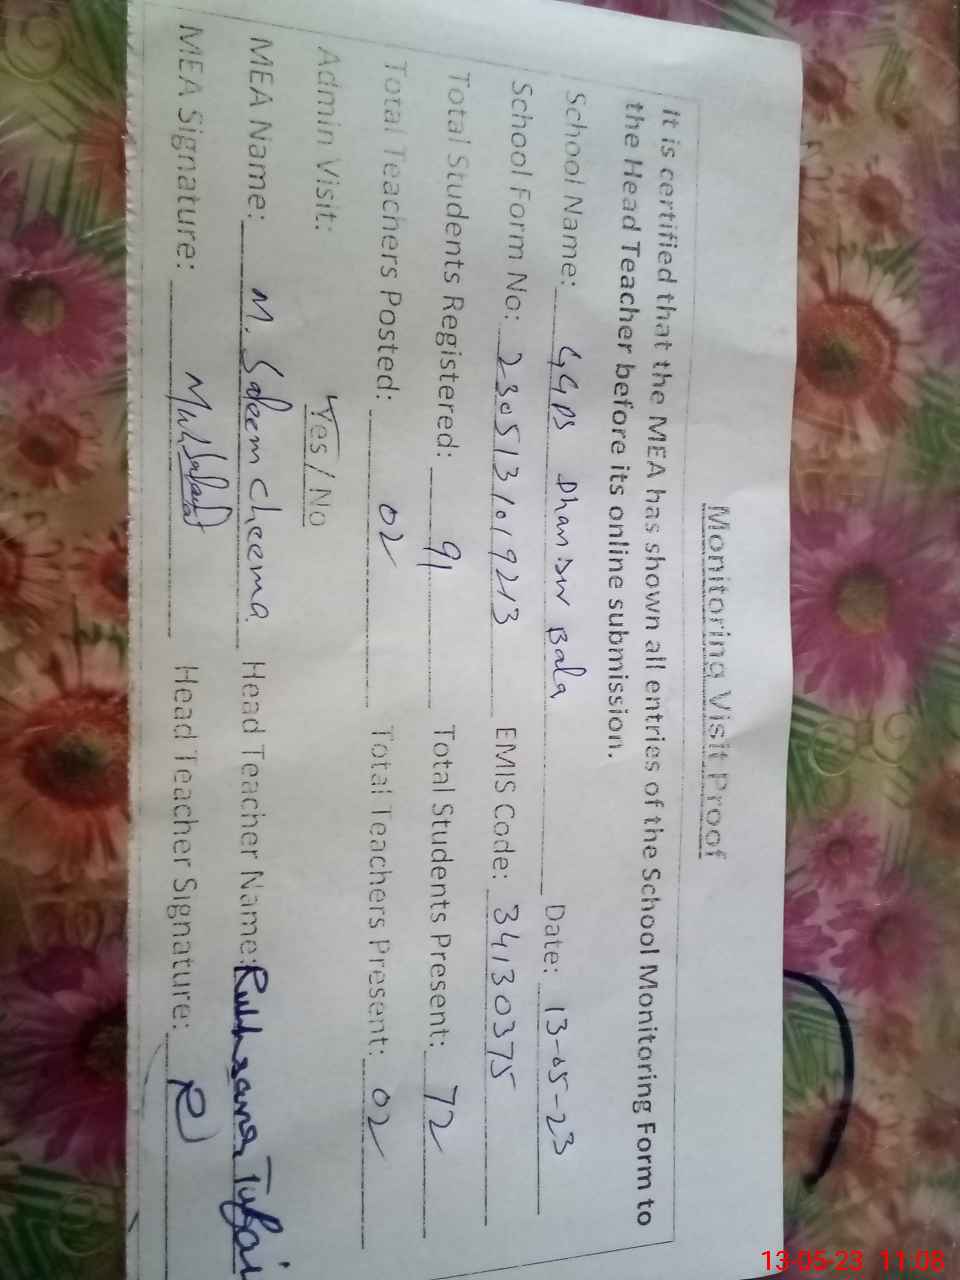 Monitoring Visit Proof
It is certified that the MEA has shown all entries of the School Monitoring Form to
the Head Teacher before its online submission.
School Name: GGPS Dhan Bala Date: 13-05-23
School Form No: 2305131019213 EMIS Code: 34130375
Total Students Registered: 91 Total Students Present: 72
Total Teachers Posted: 02 Total Teachers Present: 02
Admin Visit: Yes / No
MEA Name: M. Saleem Cheema Head Teacher Name: Rukhsana Tufail
MEA Signature: Head Teacher Signature: R
13-05-23 11:08